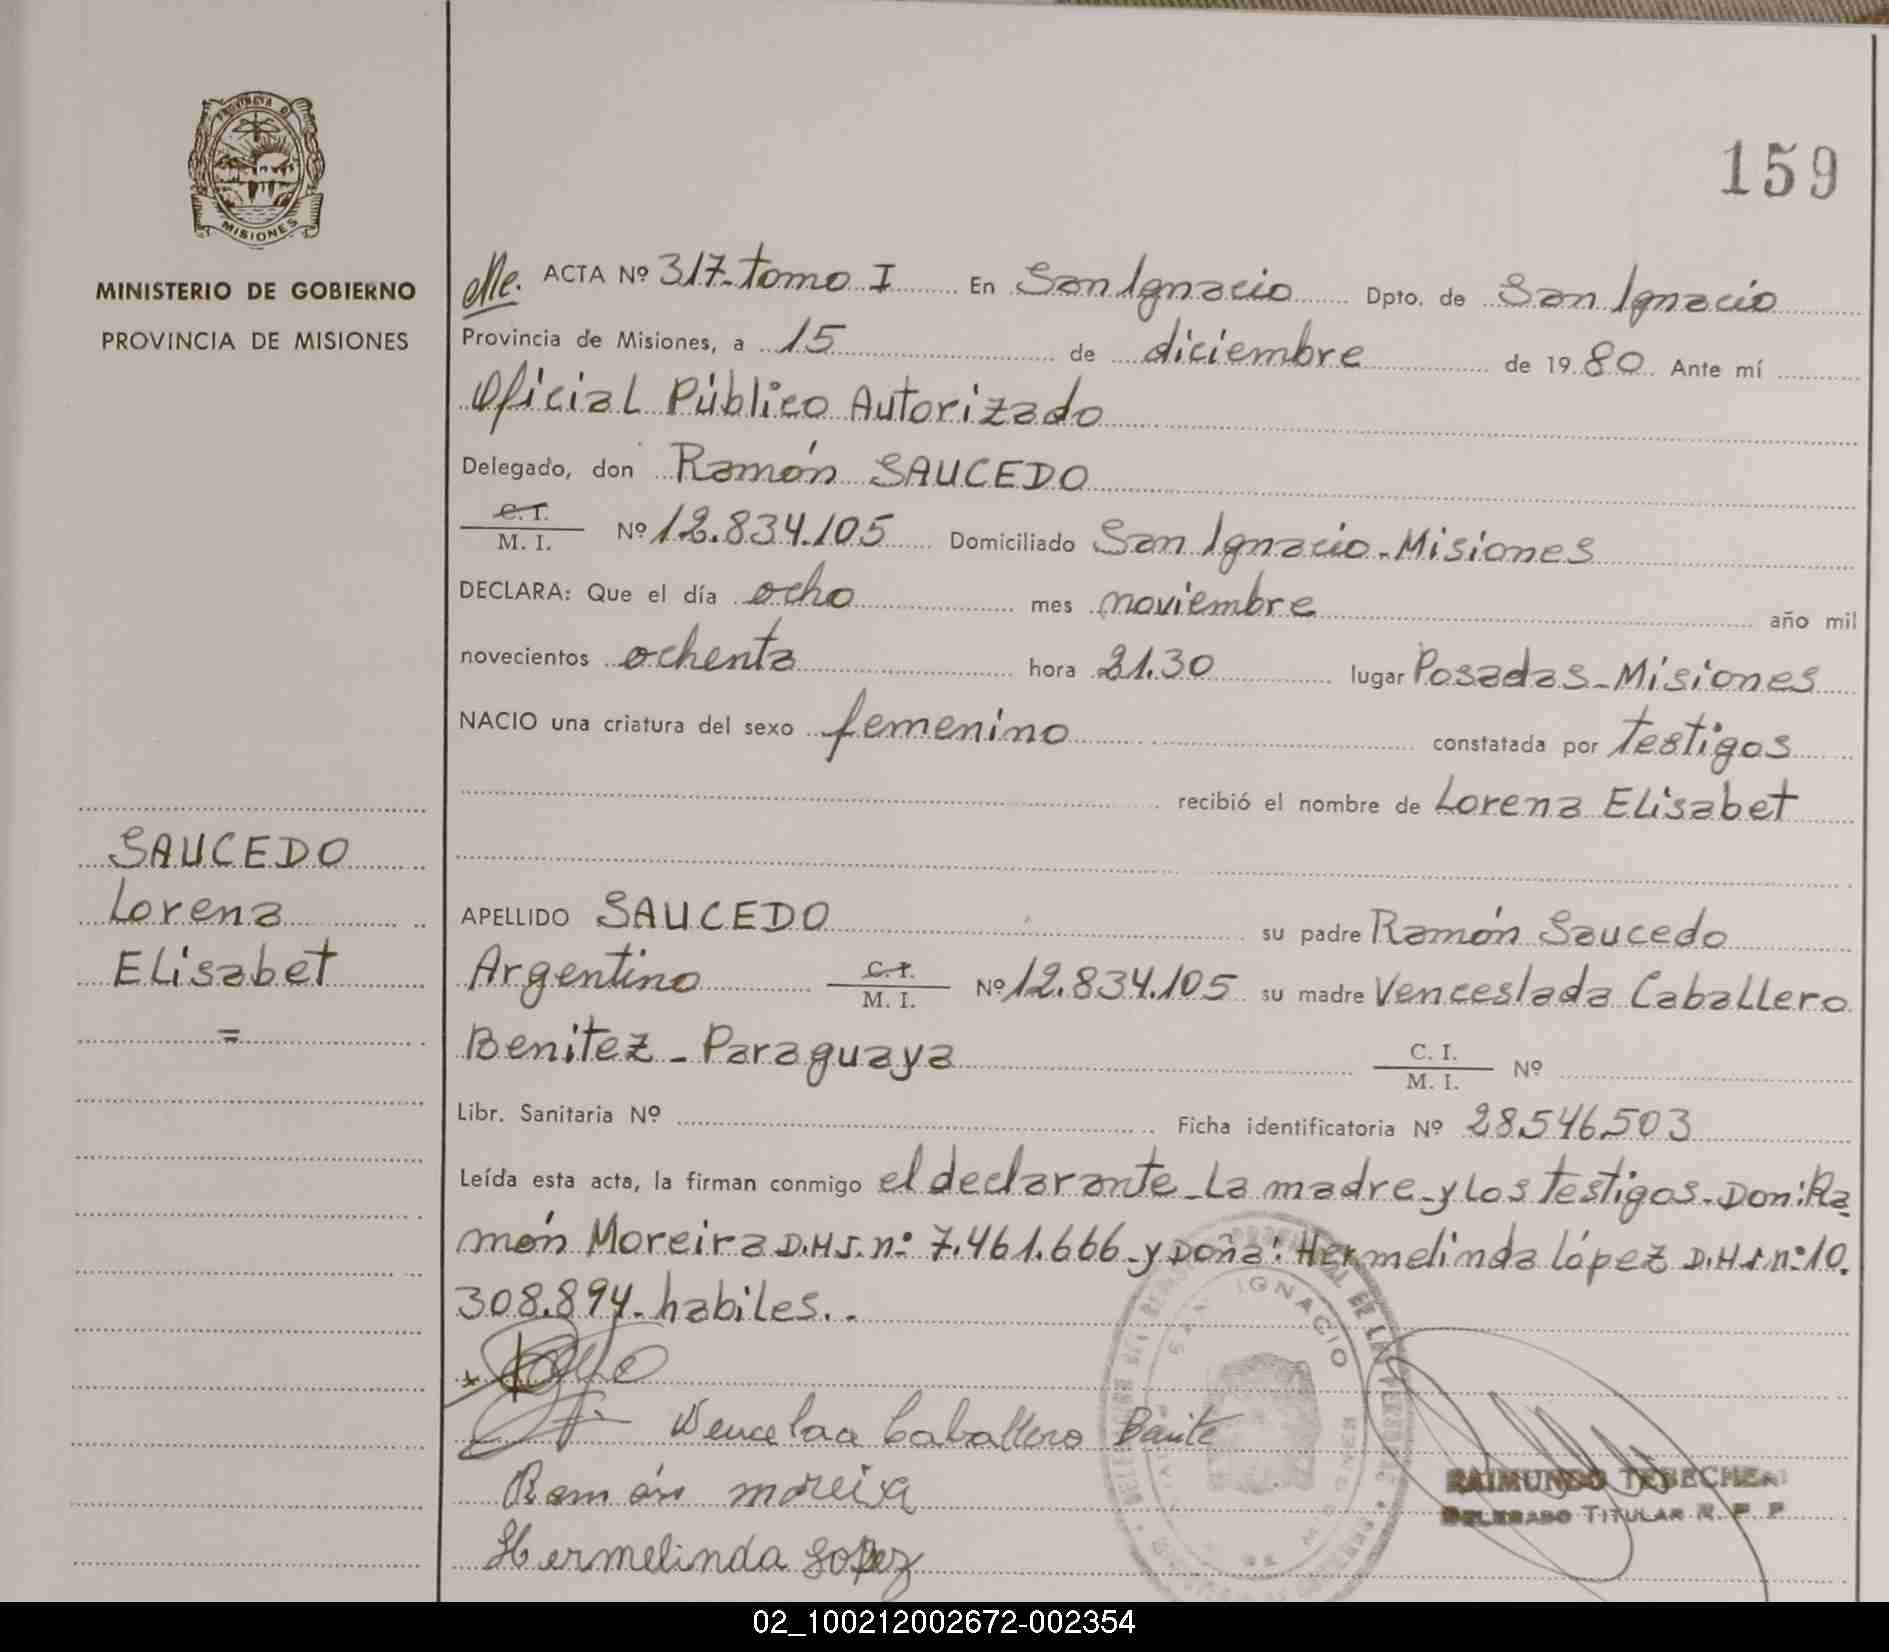 159
PROVINCIA DE
MISIONES
MINISTERIO DE GOBIERNO
PROVINCIA DE MISIONES
SAUCEDO
Lorena
ELisabet
=
ACTA Nº 317-tomo I En San Ignacio Dpto. de San Ignacio
Provincia de Misiones, a 15 de diciembre de 1980 Ante mí
Oficial Público Autorizado
Delegado, don Ramón SAUCEDO
C. I.
M. I. Nº 12.834.105 Domiciliado San Ignacio-Misiones
DECLARA: Que el día ocho mes noviembre año mil
novecientos ochenta hora 21.30 lugar Posadas-Misiones
NACIO una criatura del sexo femenino constatada por testigos
recibió el nombre de Lorena ELisabet
APELLIDO SAUCEDO su padre Ramón Saucedo
Argentino C. I. M. I. Nº 12.834.105 su madre Venceslada Caballero
Benitez - Paraguaya C. I. M. I. Nº
Libr. Sanitaria Nº Ficha identificatoria Nº 28.546.503
Leída esta acta, la firman conmigo el declarante-La madre-y Los testigos-Don: Ra
món Moreira D.N.I. nº 7.461.666-y Doña: Hermelinda López D.N.I. nº 10.
308.894-habiles..
Caballero
Ramón moreira
Hermelinda Lopez
SAN IGNACIO
RAIMUNDO TEBECHERI
DELEGADO TITULAR R. P. P.
02_100212002672-002354